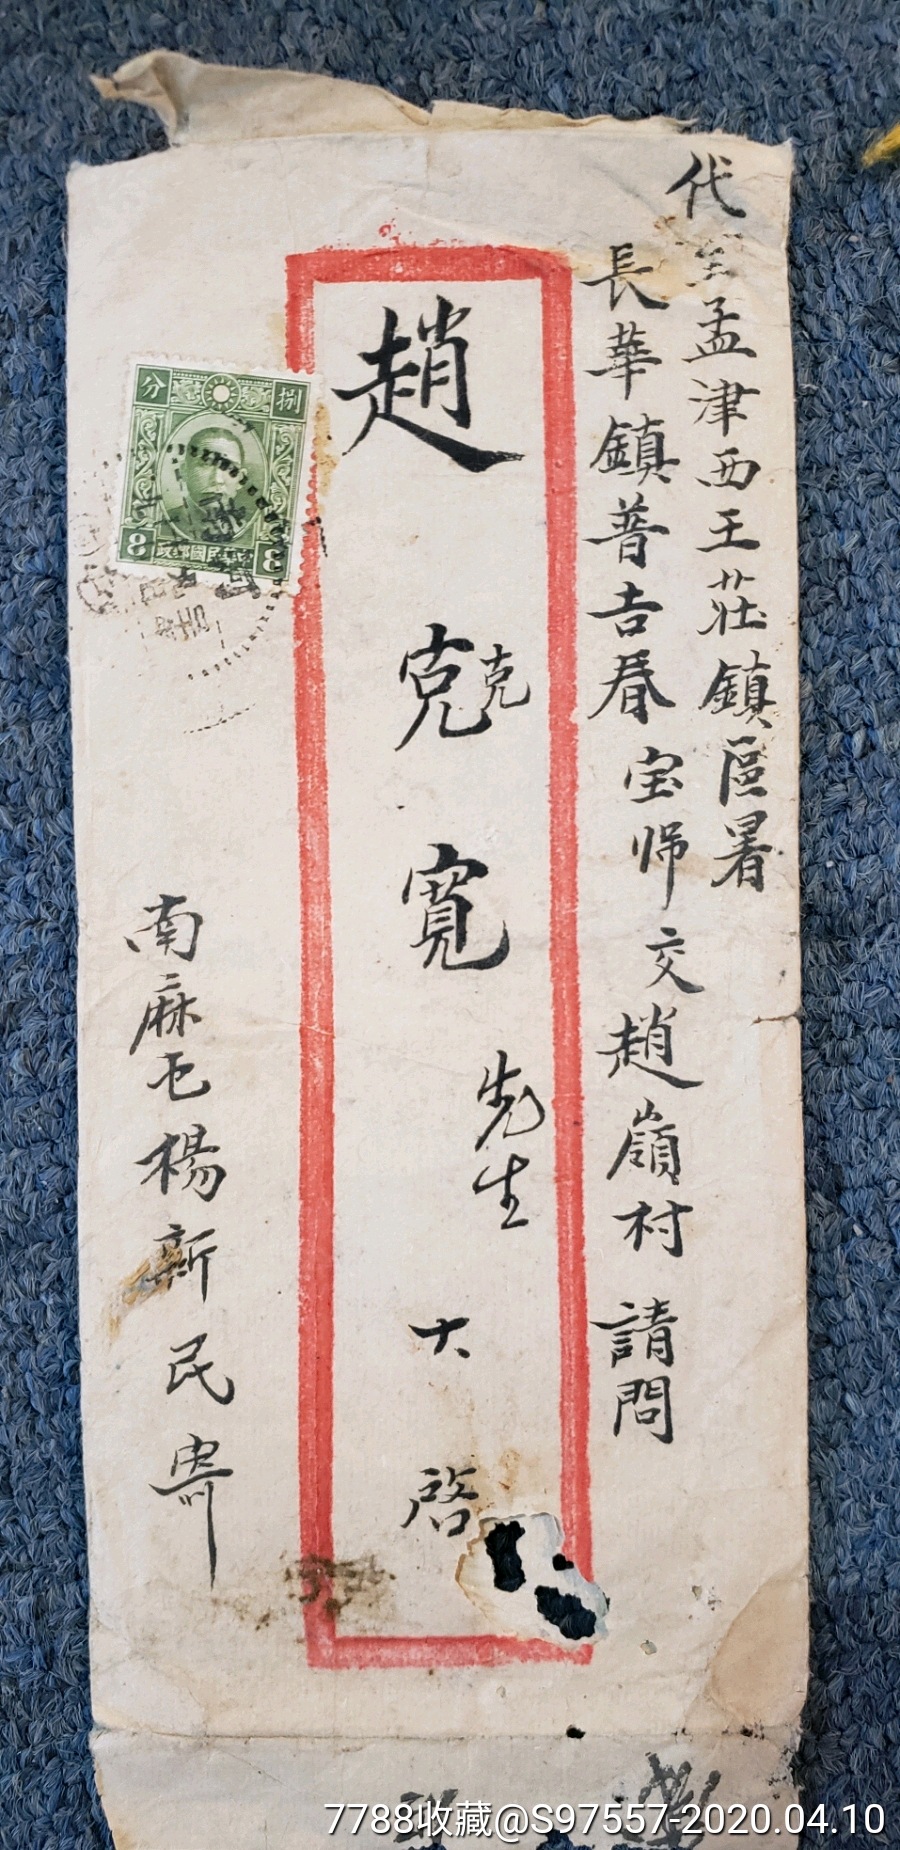 代至孟津西王莊鎮區署
長華鎮普吉春宝师交趙嶺村請問
趙克克寬先生大啓
捌分
中華民國郵政
8 8
南麻屯楊新民寄
7788收藏@S97557-2020.04.10